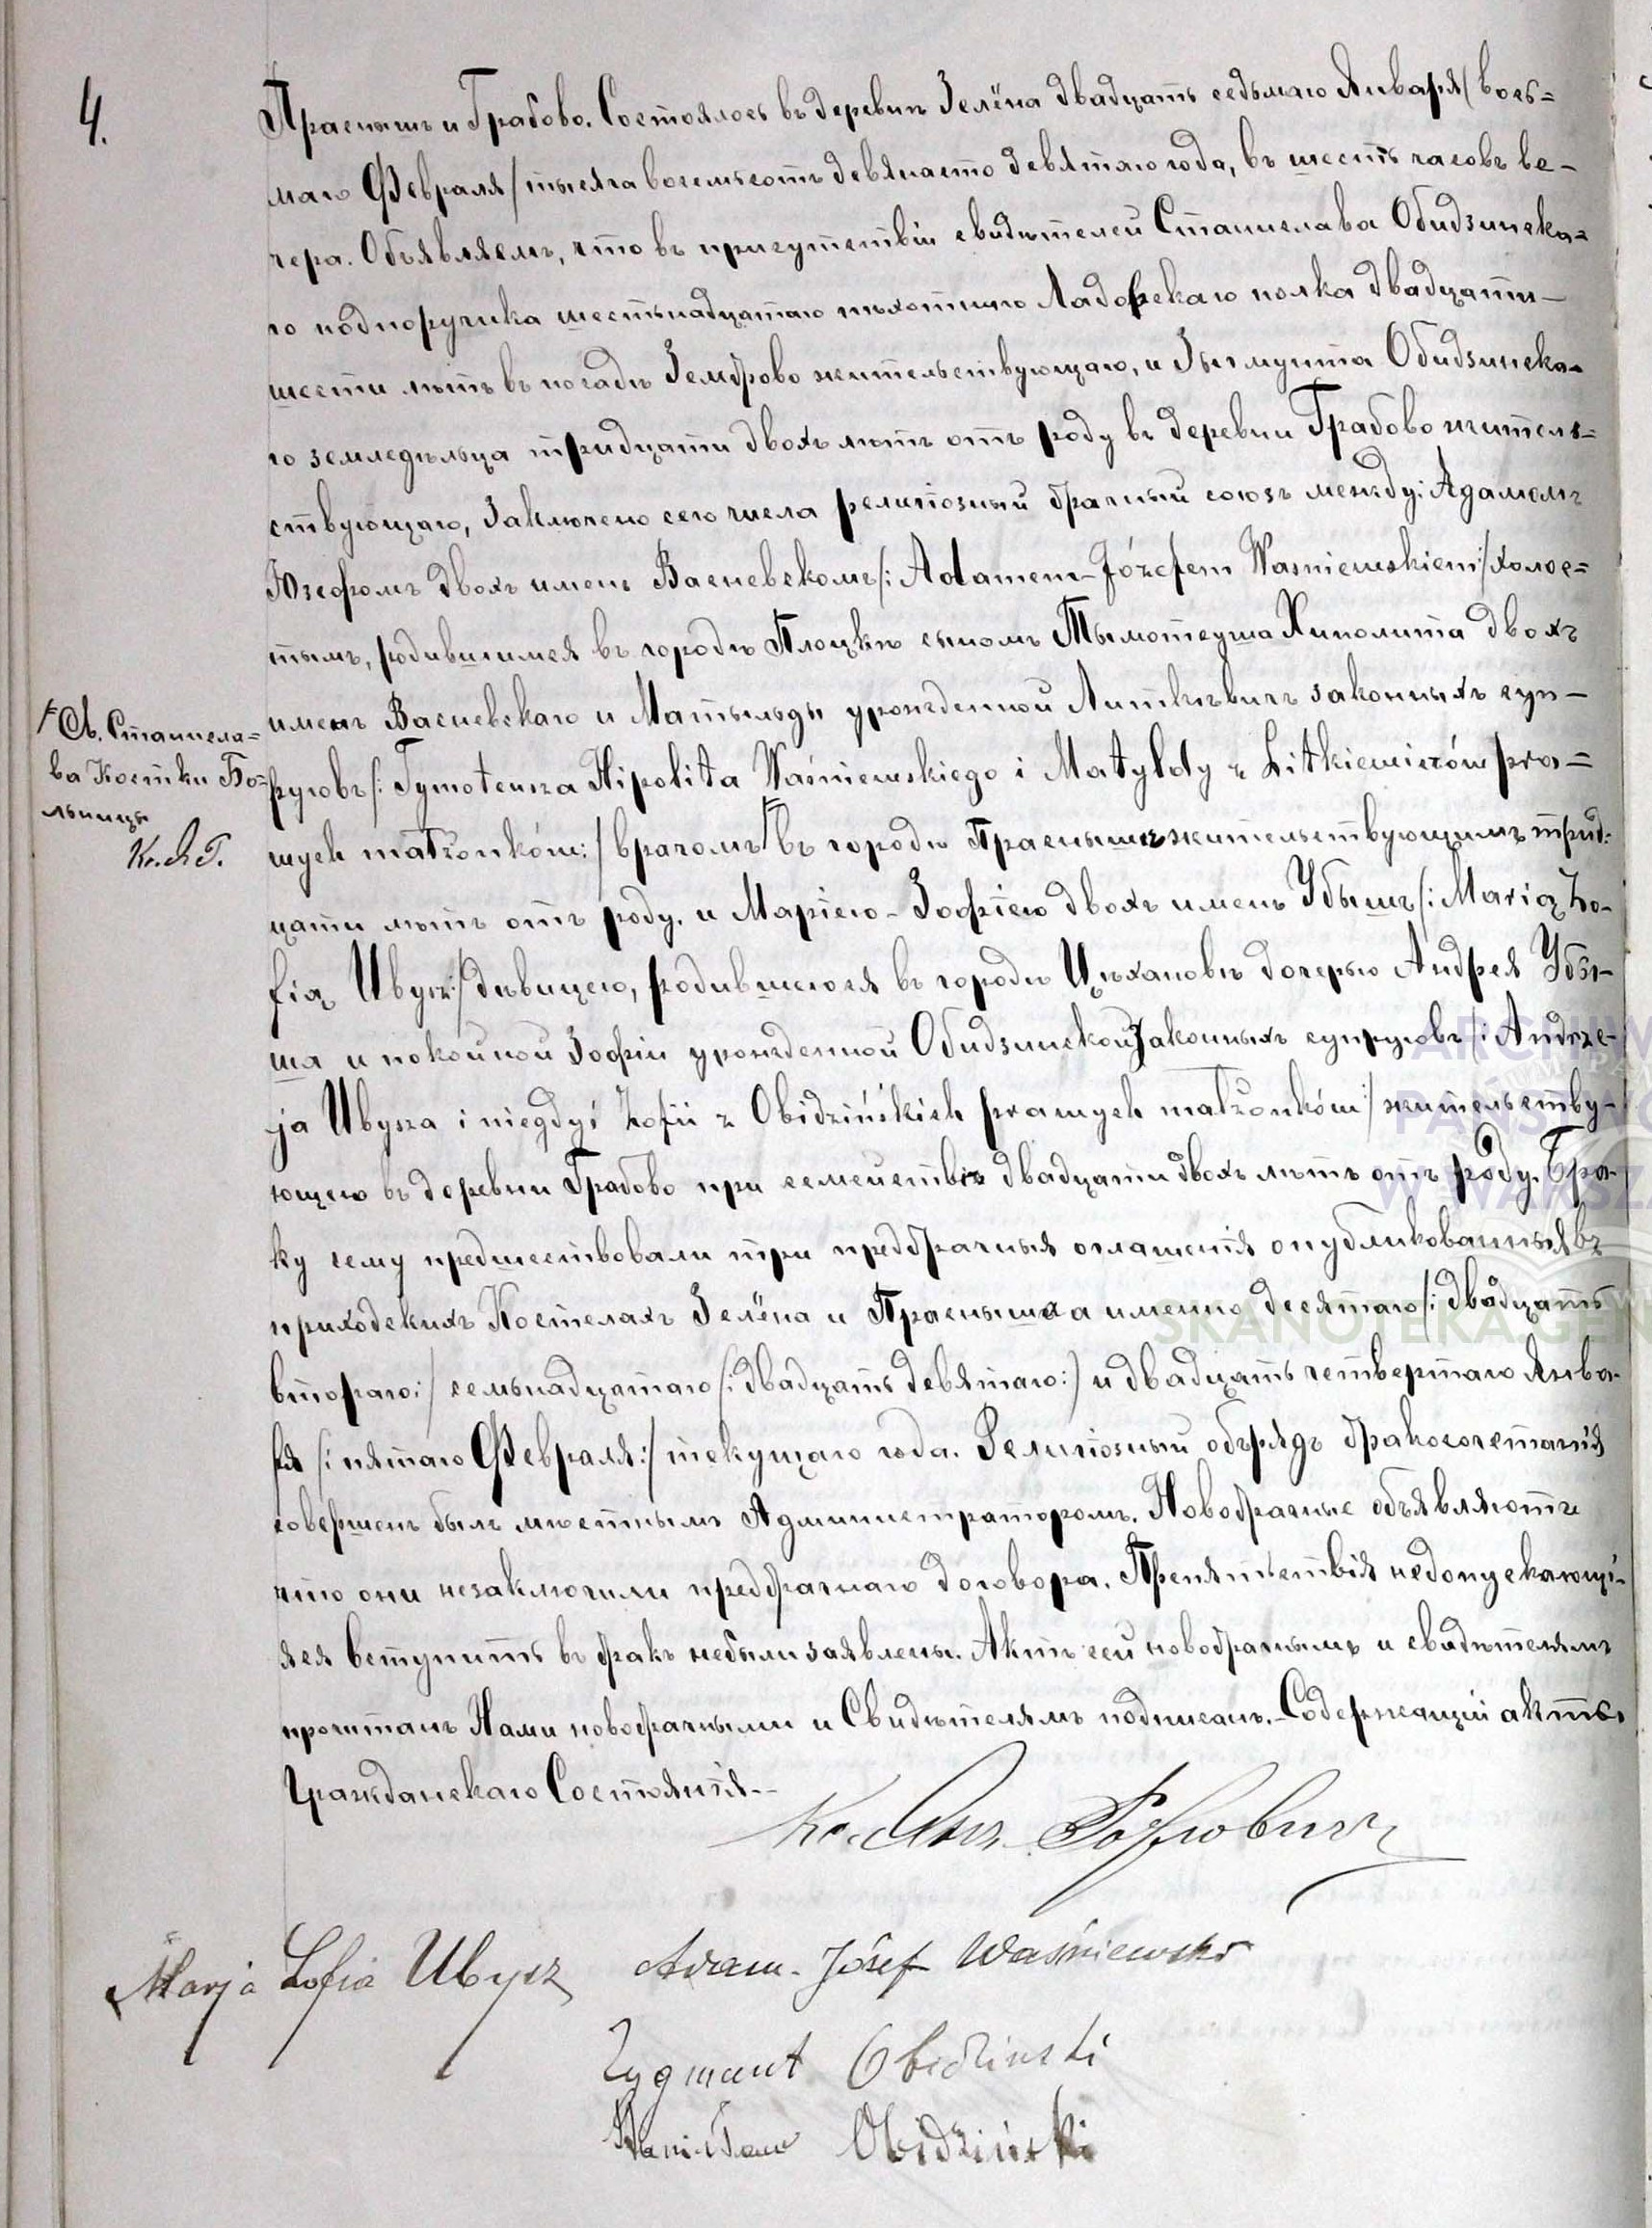 4.
Праснышъ и Грабово. Состоялось въ деревнѣ Зелёна двадцать седьмаго Января /вось=
маго Февраля/ тысяча восемьсотъ девяносто девятаго года, въ шесть часовъ ве-
чера. Объявляемъ, что въ присутствіи свидѣтелей Станислава Обидзинска-
го подпоручика шестьнадцатаго пѣхотнаго Ладожскаго полка двадцати-
шести лѣтъ въ посадѣ Земброво жительствующаго, и Зыгмунта Обидзинска-
го земледѣльца тридцати двохъ лѣтъ отъ роду въ деревни Грабово житель=
ствующаго, Заключено сего числа религіозный брачный союзъ между: Адамомъ
Юзефомъ двохъ именъ Васневскомъ /: Adamem-Józefem Waśniewskiem :/ холос=
тымъ, родившимся въ городѣ Плоцкѣ сыномъ Тымотеуша Хиполита двохъ
именъ Васневскаго и Матыльды урожденной Литкѣвичъ законныхъ суп-
руговъ /: Tymoteusza Hipolita Waśniewskiego i Matyldy z Litkiewiczów pra=
wych małżonków: / врачомъ въ городѣ Праснышѣ жительствующимъ трид-
цати лѣтъ отъ роду. и Маріею-Зофіею двохъ именъ Убышъ /: Marią Zo-
fią Ubysz :/ дѣвицею, родившеюся въ городѣ Цѣхановѣ дочерью Андрея Убы-
ша и покойной Зофіи урожденной Обидзинской Законныхъ супруговъ /: Andrze-
ja Ubysza i niegdyś Zofii z Obidzińskich prawych małżonków :/ жительству-
ющею въ деревни Грабово при семействѣ двадцати двохъ лѣтъ отъ роду. Бра-
ку сему предшествовали три предбрачныя оглашенія опубликованныя въ
приходскихъ Костелахъ Зелёна и Праснышъ а именно десятаго /: двадцать
втораго: / семьнадцатаго /: двадцать девятаго :/ и двадцать четвертаго Янва-
ря /: пятаго Февраля :/ текущаго года. Религіозный обрядъ бракосочетанія
совершенъ былъ мѣстнымъ Администраторомъ. Новобрачные объявляютъ
что они незаключили предбрачнаго договора. Препятствія недопускающі-
яся вступить въ бракъ небыли заявлены. Актъ сей новобрачнымъ и свидѣтелямъ
прочитанъ Нами новобрачными и Свидѣтелямъ подписанъ. - Содержащій акты
Гражданскаго Состоянія. -
Св. Станисла=
ва Костки Бо=
льницы
Кс. А. Г.
Кс.
Marja Zofia Ubysz Adam-Józef Waśniewski
Zygmunt Obidzinski
Stanisław Obidziński